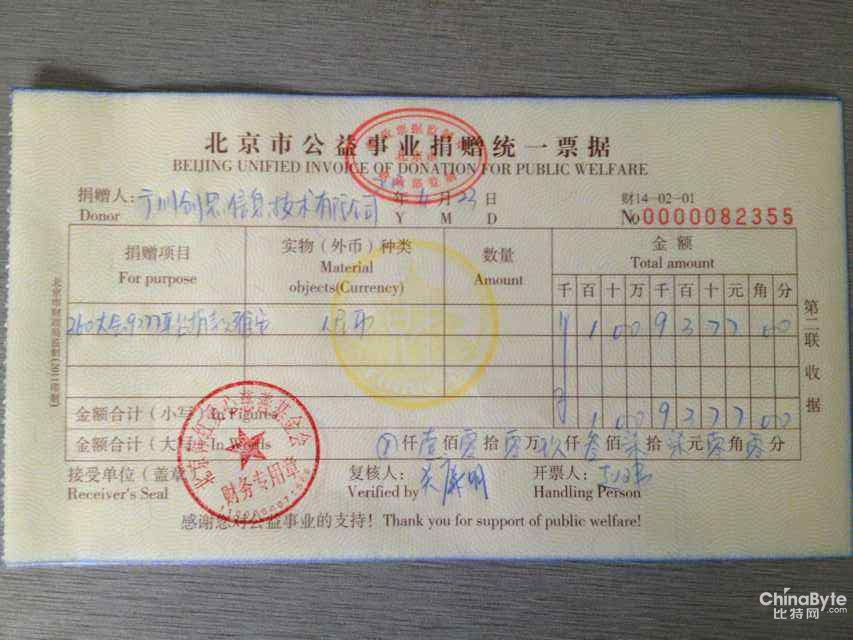 北京市公益事业捐赠统一票据
BEIJING UNIFIED INVOICE OF DONATION FOR PUBLIC WELFARE
捐赠人: 创思信息技术有限公司 年 6 月 23 日 财14-02-01
Donor Y M D No 0000082355
捐赠项目 实物（外币）种类 数量 金额
For purpose Material objects(Currency) Amount Total amount
千 百 十 万 千 百 十 元 角 分
人民币 ¥ 1 0 0 9 3 7 7 0 0
金额合计（小写）In Figures ¥ 1 0 0 9 3 7 7 0 0
金额合计（大写）In Words ⊗ 仟 壹 佰 零 拾 零 万 玖 仟 叁 佰 柒 拾 柒 元 零 角 零 分
接受单位（盖章） 复核人: 开票人:
Receiver's Seal Verified by Handling Person
感谢您对公益事业的支持！Thank you for support of public welfare!
第二联 收据
财务专用章
ChinaByte
比特网.com